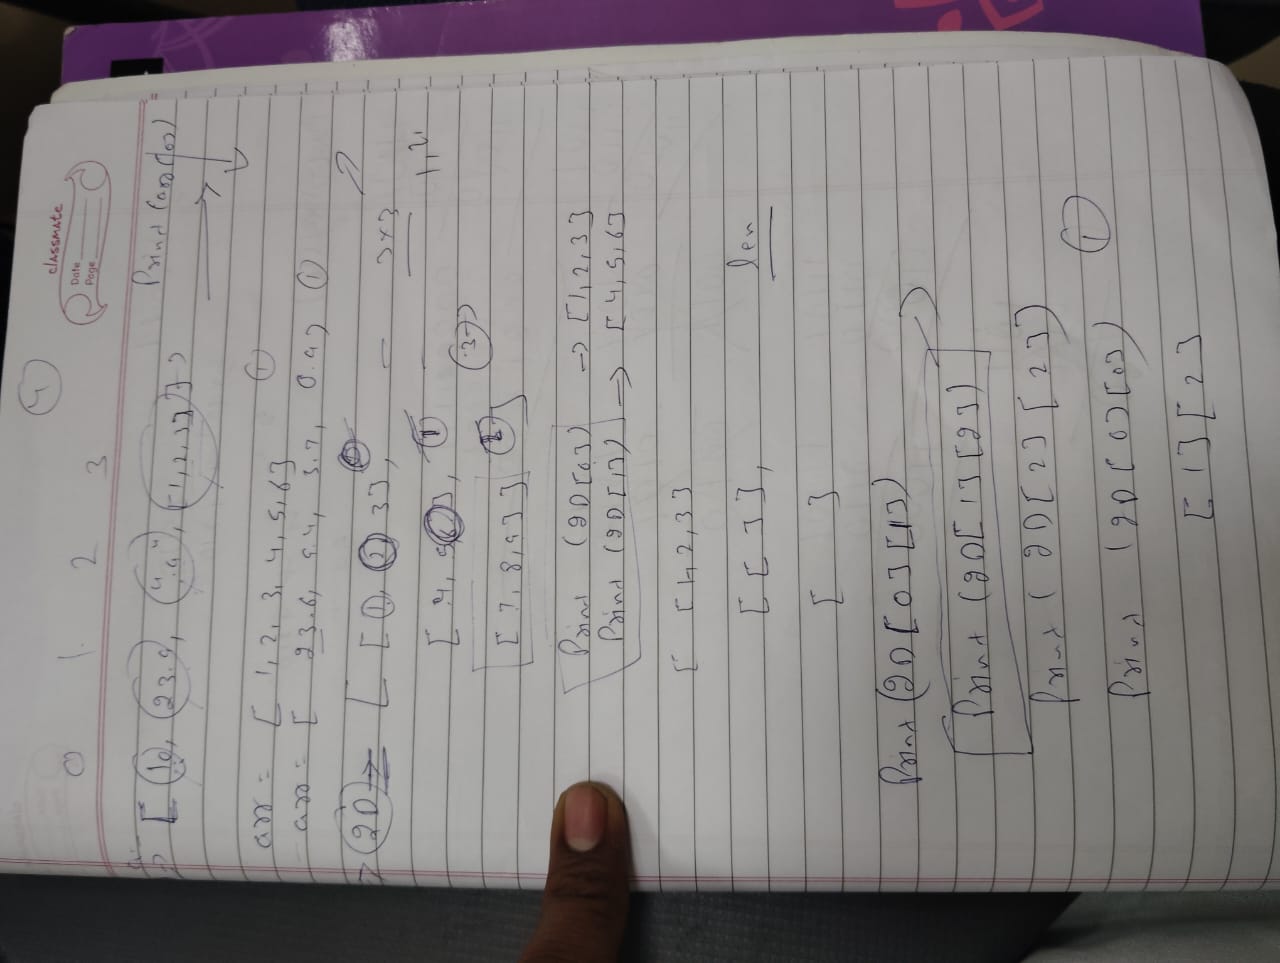 classmate
Date
Page
4
0 1. 2 3
[ 10, 23.9, "4.4", [1,2,3] ]
arr = [ 1, 2, 3, 4, 5, 6 ] 1
arr = [ 23.6, 94, 3.7, 0.9, 1
2D → [ [ 1, 2 3], 0 - 3x3
[ 4, 5 6], 1 - 1,2
[ 7, 8, 9 ] ]
Print (2D[0]) → [1, 2, 3]
Print (2D[1]) → [4, 5, 6]
[ [ 1, 2, 3 ]
[ [ 3 ], len
[ ]
Print (2D[0][1])
Print (2D[1][2])
Print ( 2D[2][2])
Print (2D[0][0]) 1
[1][2]